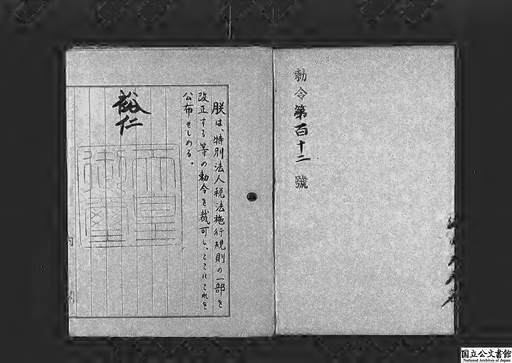 勅令第百十二號
朕は、特別法人税法施行規則の一部を
改正する等の勅令を裁可し、ここにこれを
公布せしめる。
裕仁
天皇
御璽
国立公文書館
National Archives of Japan